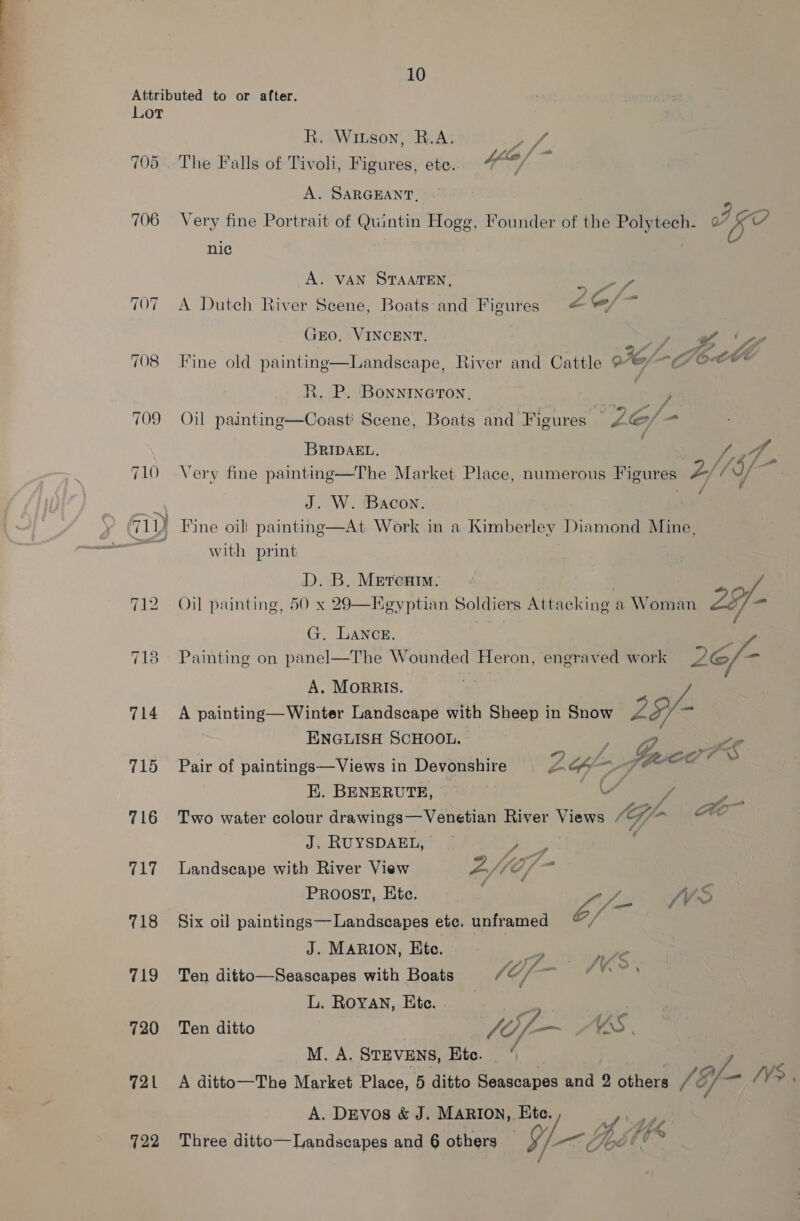 10
Attributed to or after.
LOT
R. WILSON, R.A.
705 The Falls of Tivoli, Figures, etc.
A. SARGEANT,
706 Very fine Portrait of Quintin Hogg, Founder of the Polytech-
nic
A. VAN STAATEN,
707 A Dutch River Scene, Boats and Figures 26/-
GEO. VINCENT.
708 Fine old painting—Landscape, River and Cattle
R. P. BONNINGTON,
709 Oil painting—Coast Scene, Boats and Figures 26/-
BRIDAEL.
710 Very fine painting—The Market Place, numerous Figures
J. W. BACON.
711 Fine oil painting—At Work in a Kimberley Diamond Mine,
with print
D. B. METCHIM.
712 Oil painting, 50 x 29—Egyptian Soldiers Attacking a Woman
G. LANCE.
713 Painting on panel—The Wounded Heron, engraved work 26/-
A. MORRIS.
714 A painting—Winter Landscape with Sheep in Snow
ENGLISH SCHOOL.
715 Pair of paintings—Views in Devonshire
E. BENERUTE,
716 Two water colour drawings—Venetian River Views
J. RUYSDAEL,
717 Landscape with River View
PROOST, Etc.
718 Six oil paintings—Landscapes etc. unframed 6/- NS
J. MARION, Etc.
719 Ten ditto—Seascapes with Boats 10/- NS.
L. ROYAN, Etc.
720 Ten ditto 10/- NS.
M. A. STEVENS, Etc.
721 A ditto—The Market Place, 5 ditto Seascapes and 2 others NS.
A. DEVOS & J. MARION, Etc.
722 Three ditto—Landscapes and 6 others